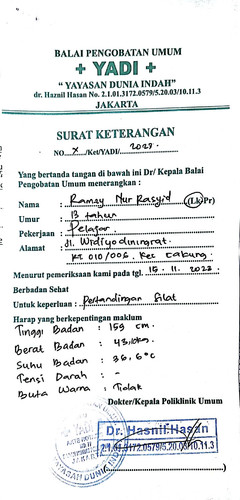 BALAI PENGOBATAN UMUM
+ YADI +
" YAYASAN DUNIA INDAH"
dr. Haznil Hasan No. 2.1.01.3172.0579/5.20.03/10.11.3
JAKARTA
SURAT KETERANGAN
NO. X /Ket/YADI/ 2023.
Yang bertanda tangan di bawah ini Dr/ Kepala Balai
Pengobatan Umum menerangkan :
Nama : Ramzy Nur Rasyid (Lk/Pr)
Umur : 13 tahun
Pekerjaan : Pelajar.
Alamat : Jl. Widiyodiningrat.
RT 010/006. Kec Cakung.
Menurut pemeriksaan kami pada tgl. 15. 11. 2023.
Berbadan Sehat
Untuk keperluan : Pertandingan Silat
Harap yang berkepentingan maklum
Tinggi Badan : 159 cm.
Berat Badan : 43,6kg.
Suhu Badan : 36,6°c
Tensi Darah : -
Buta Warna : Tidak
Dokter/Kepala Poliklinik Umum
Dr. Hasnil Hasan
2.1.01.3172.0579/5.20.03/10.11.3
YAYASAN DUNIA INDAH